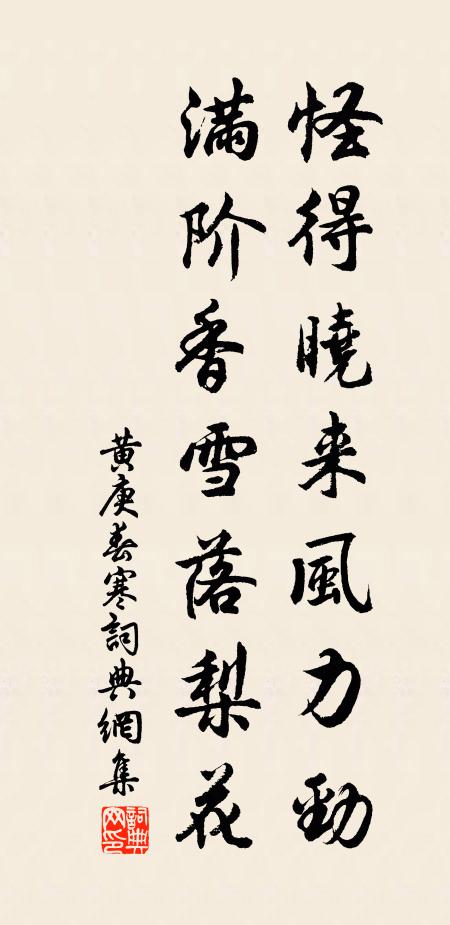 怪得曉来風力勁
满阶香雪落梨花
黄庚春寒詞典網集
詞典网印